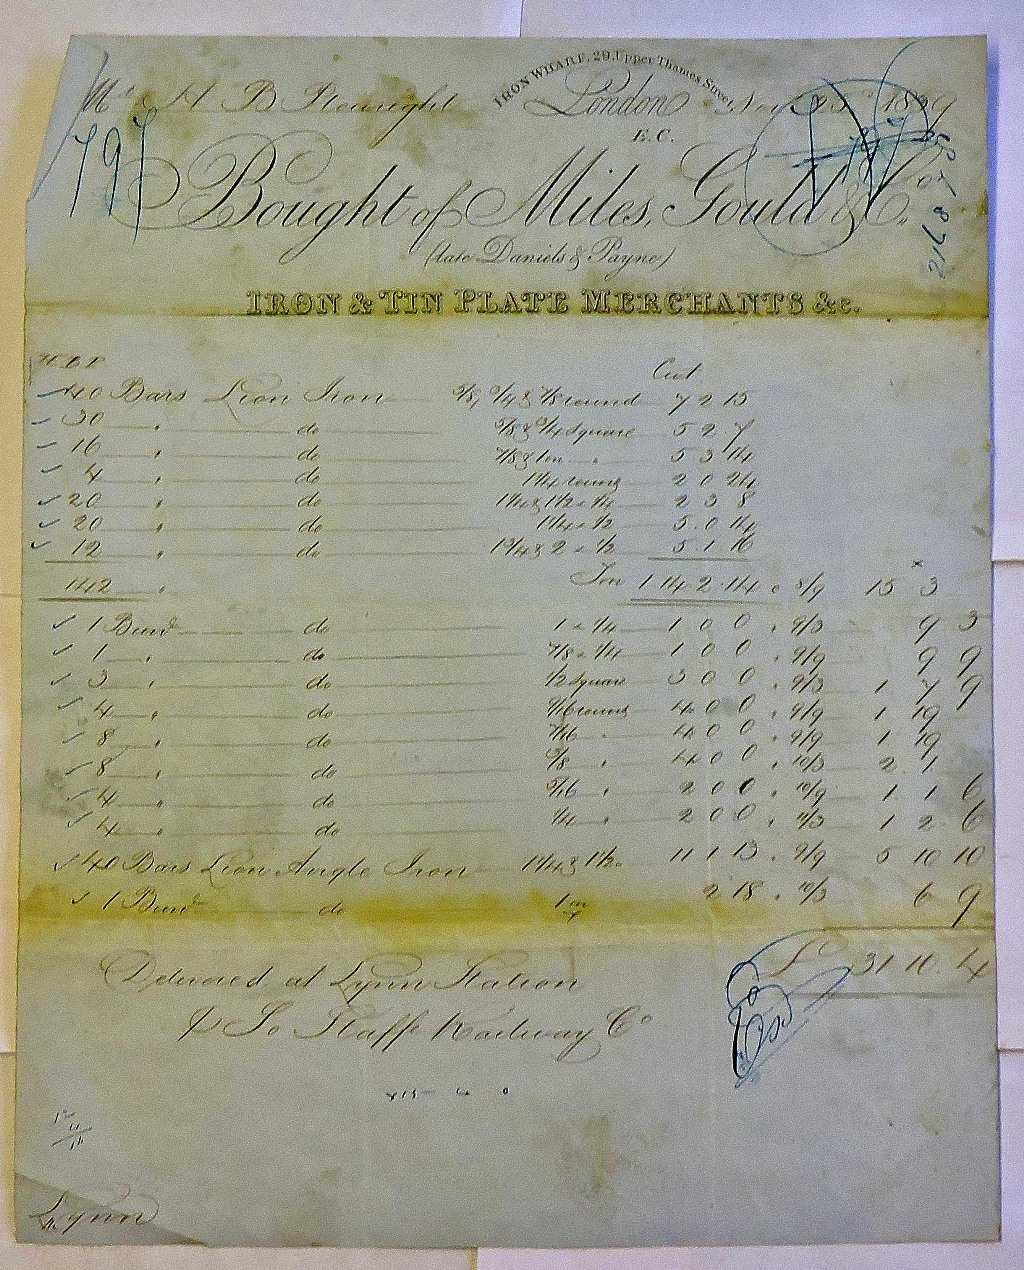 IRON WHARF, 29, Upper Thames Street,
Mr H B Plowright London Nov 1859
E.C.
797
Bought of Miles, Gould & Co.
(late Daniels & Payne)
IRON & TIN PLATE MERCHANTS &c.
Cwt
40 Bars Lion Iron 5/8, 3/4 & 7/8 round 7 2 15
30 " do 5/8 & 3/4 square 5 2 7
16 " do 7/8 & 1 in " 5 3 14
4 " do 1 1/4 round 2 0 24
20 " do 1 1/4 & 1 1/2 x 1/4 2 3 8
20 " do 1 1/4 x 1/2 5 0 14
12 " do 1 3/4 & 2 x 1/2 5 1 16
142 " Ton 1 14 2 14 8/9 15 3
1 Bund do 1 x 1/4 1 0 0 " 9/3 9 3
1 " do 7/8 x 1/4 1 0 0 " 9/9 9 9
3 " do 1/2 square 3 0 0 " 9/3 1 7 9
4 " do 9/16 round 4 0 0 " 9/9 1 19
8 " do 7/16 " 4 0 0 " 9/9 1 19
8 " do 3/8 " 4 0 0 " 10/3 2 1
4 " do 5/16 " 2 0 0 " 10/9 1 1 6
4 " do 1/4 " 2 0 0 " 11/3 1 2 6
40 Bars Lion Angle Iron 1 1/4 & 1 1/2 11 1 13 " 9/9 5 10 10
1 Bund do 1 in 2 18 " 10/3 6 9
£ 31 10 4
Delivered at Lynn Station
So Staff Railway Co
Lynn